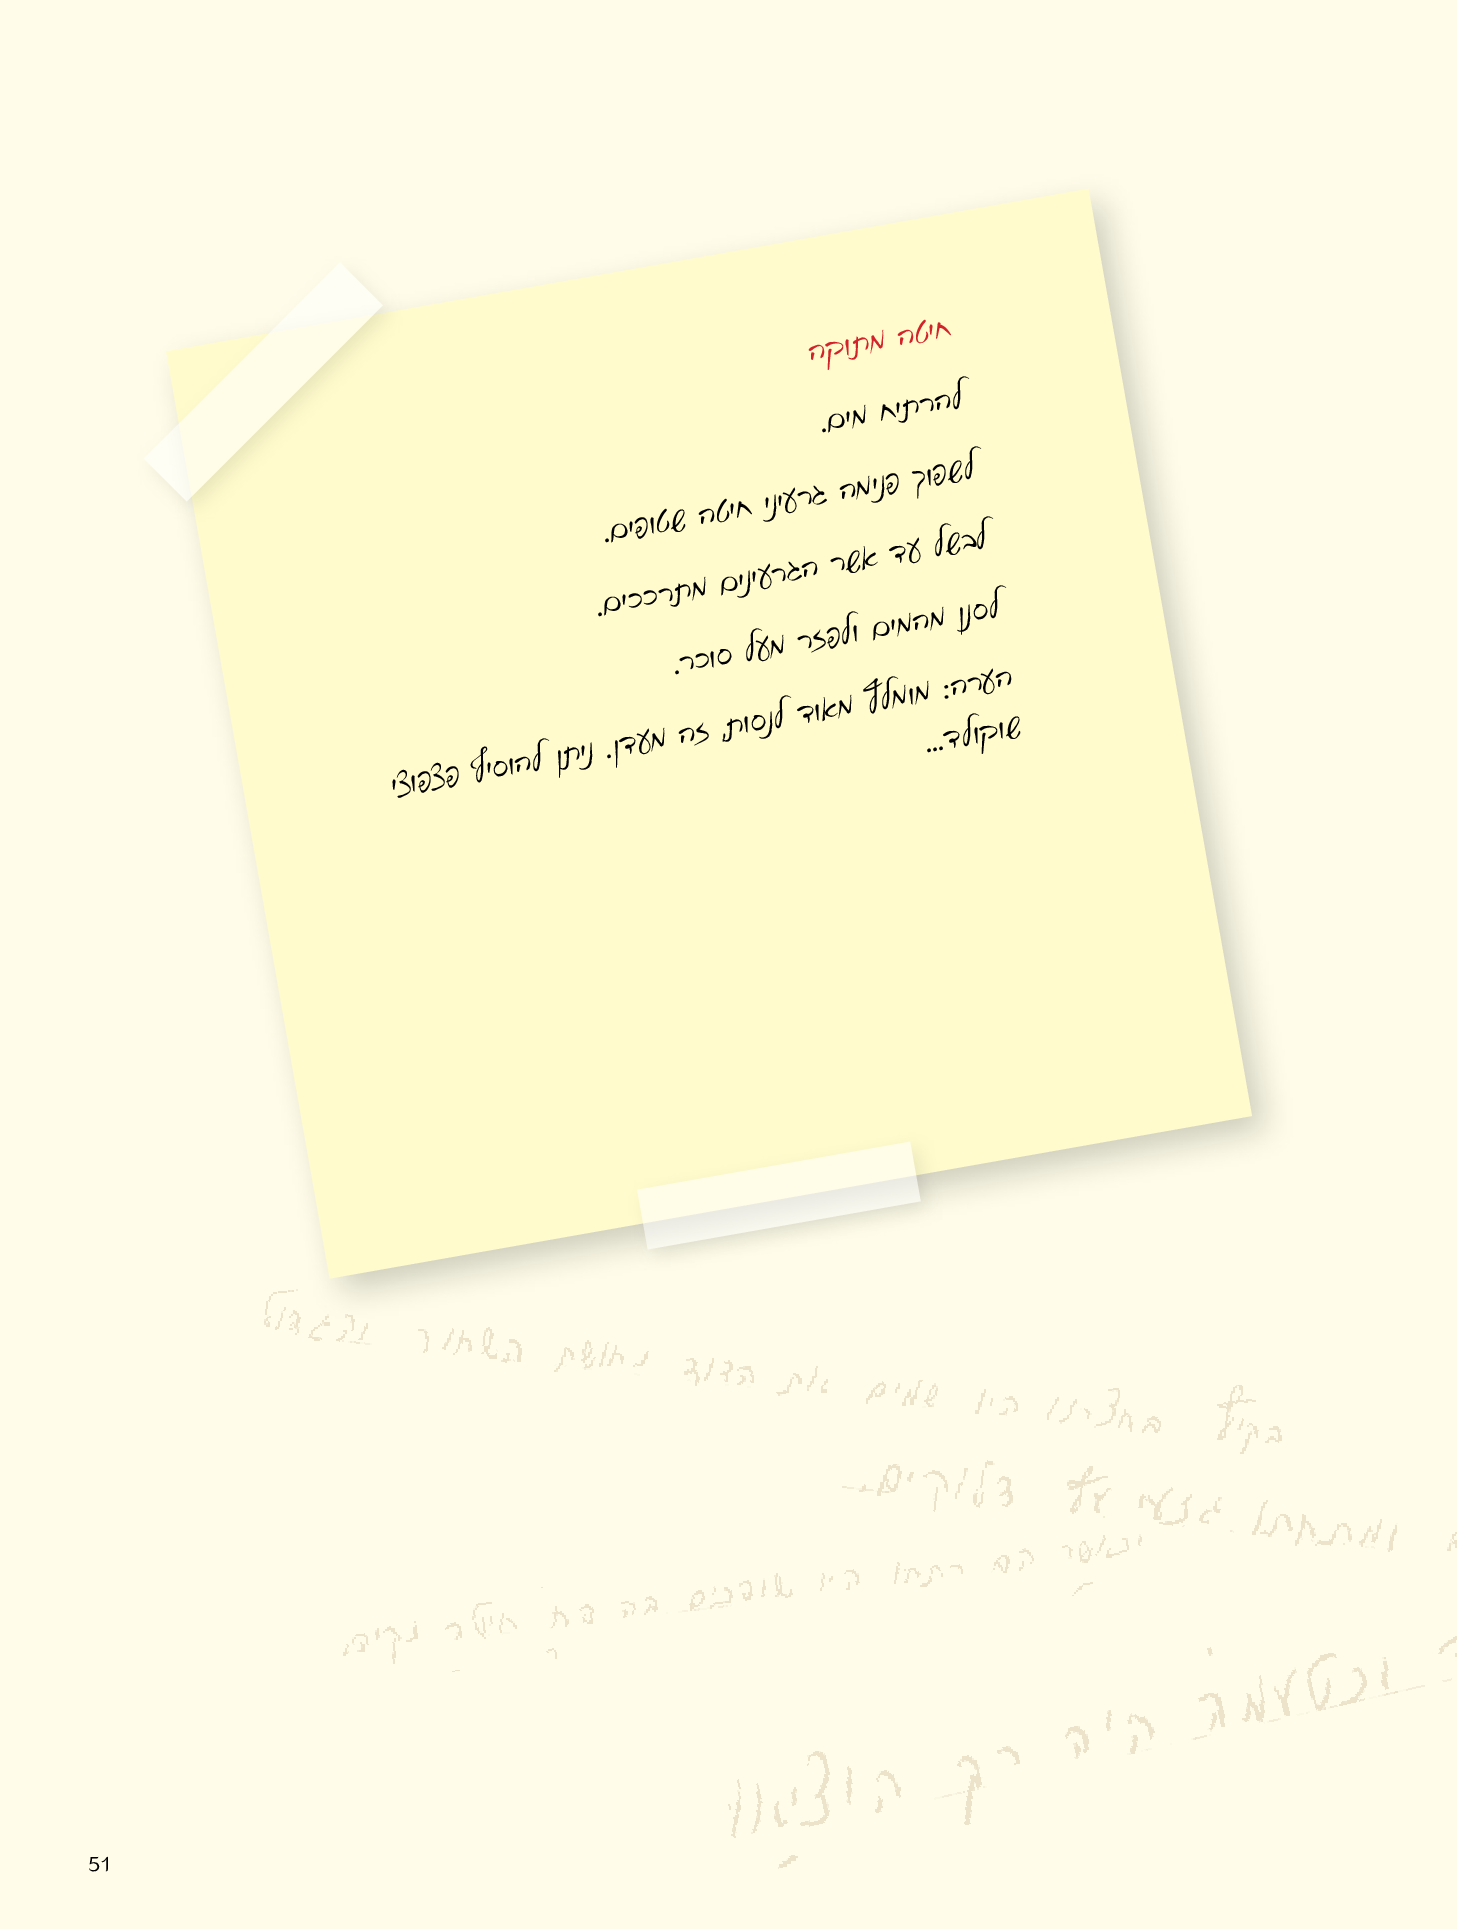 חיטה מתוקה
להרתיח מים.
לשפוך פנימה גרעיני חיטה שטופים.
לבשל עד אשר הגרעינים מתרככים.
לסנן מהמים ולפזר מעל סוכר.
הערה: מומלץ מאוד לנסות, זה מעדן. ניתן להוסיף פצפוצי
שוקולד...
בקיץ בחצרינו היו שמים את הדוד נחושת השחור והגדול
ומתחתיו גזעי עץ דלוקים
וכאשר הם רתחו היו שופכים בה חיטה נקיה
היה רך הוציאו
51